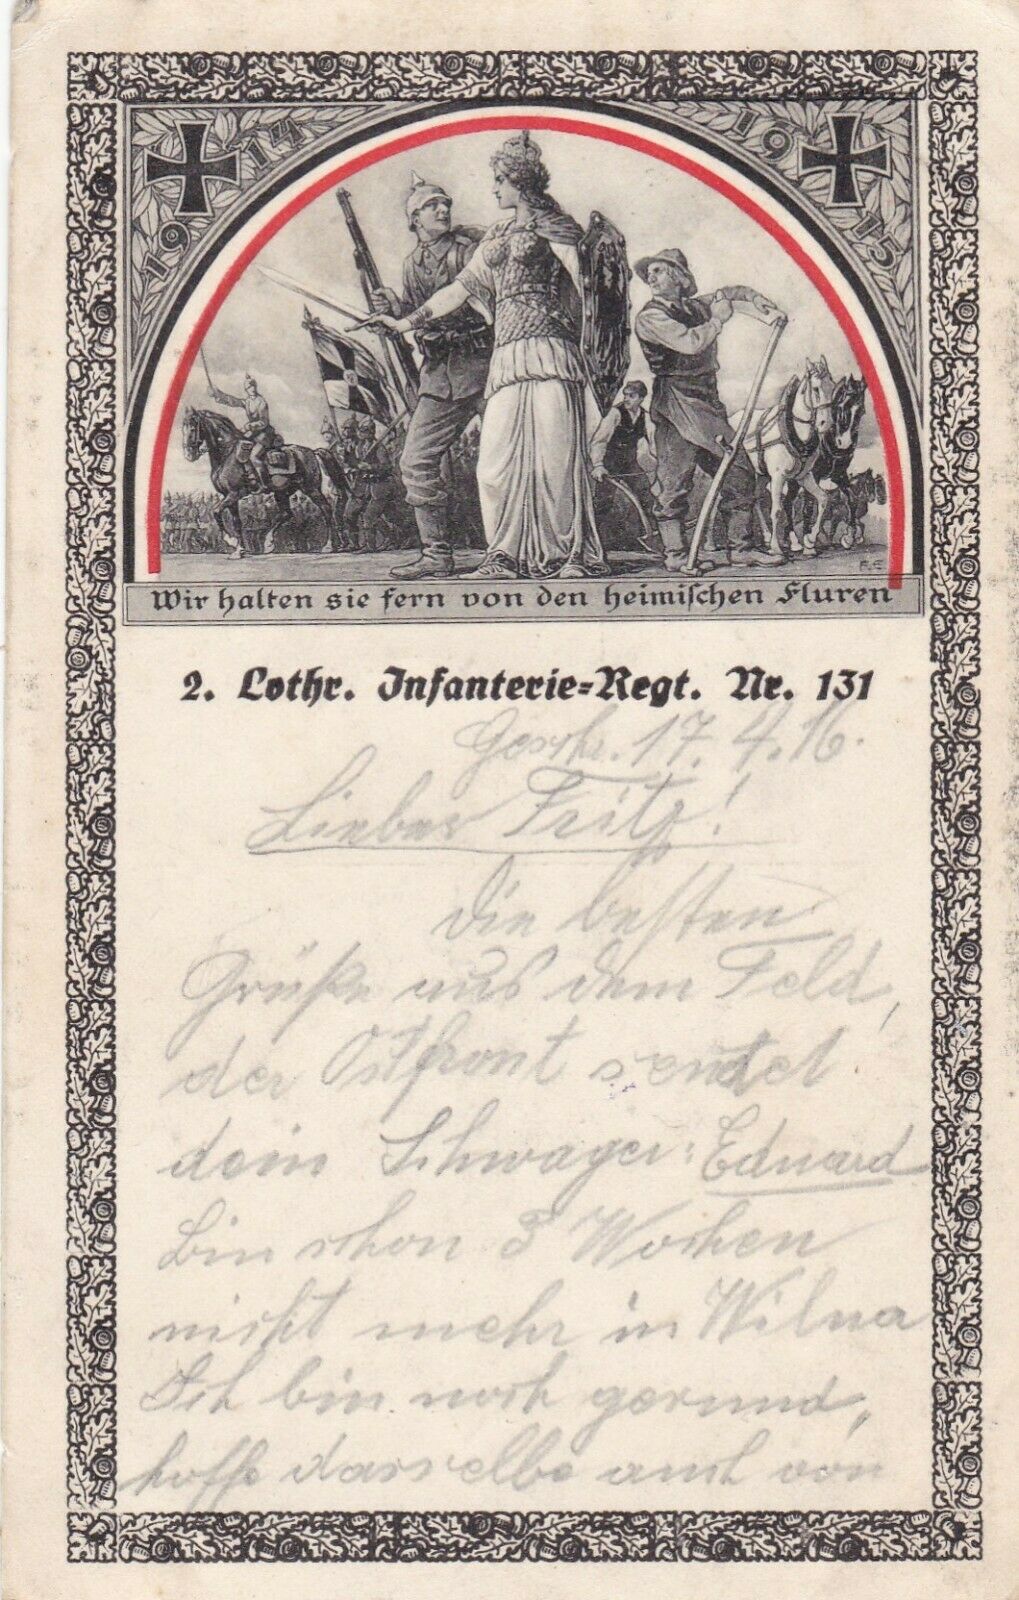 1914
1915
F. E.
Wir halten sie fern von den heimischen Fluren
2. Lothr. Infanterie=Regt. Nr. 131
Geschr. 17.4.16.
Lieber Fritz!
die besten
Grüße aus dem Feld,
der Ostfront sendet
dein Schwager: Eduard
bin schon 3 Wochen
nicht mehr in Wilna
Ich bin noch gesund,
hoffe dasselbe auch von